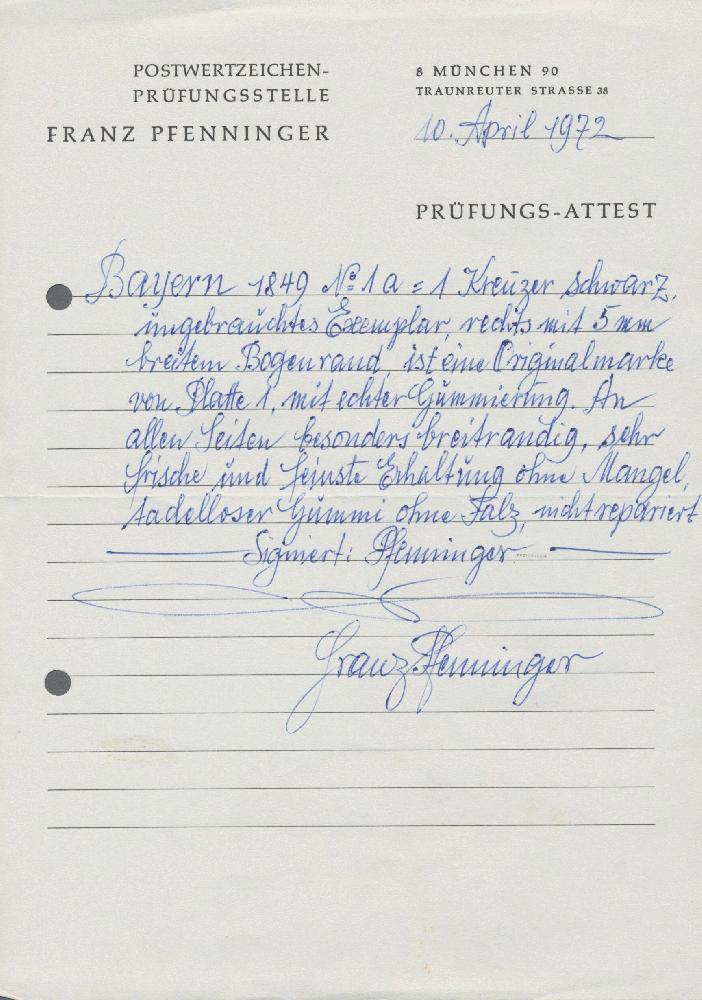 POSTWERTZEICHEN-
PRÜFUNGSSTELLE
FRANZ PFENNINGER
8 MÜNCHEN 90
TRAUNREUTER STRASSE 38
10. April 1972
PRÜFUNGS-ATTEST
Bayern 1849 No 1 a = 1 Kreuzer schwarz,
ungebrauchtes Exemplar, rechts mit 5 mm
breitem Bogenrand, ist eine Originalmarke
von Platte 1, mit echter Gummierung. An
allen Seiten besonders breitrandig, sehr
frische und feinste Erhaltung ohne Mangel,
tadelloser Gummi ohne Falz, nicht repariert
Signiert: Pfenninger
Franz Pfenninger